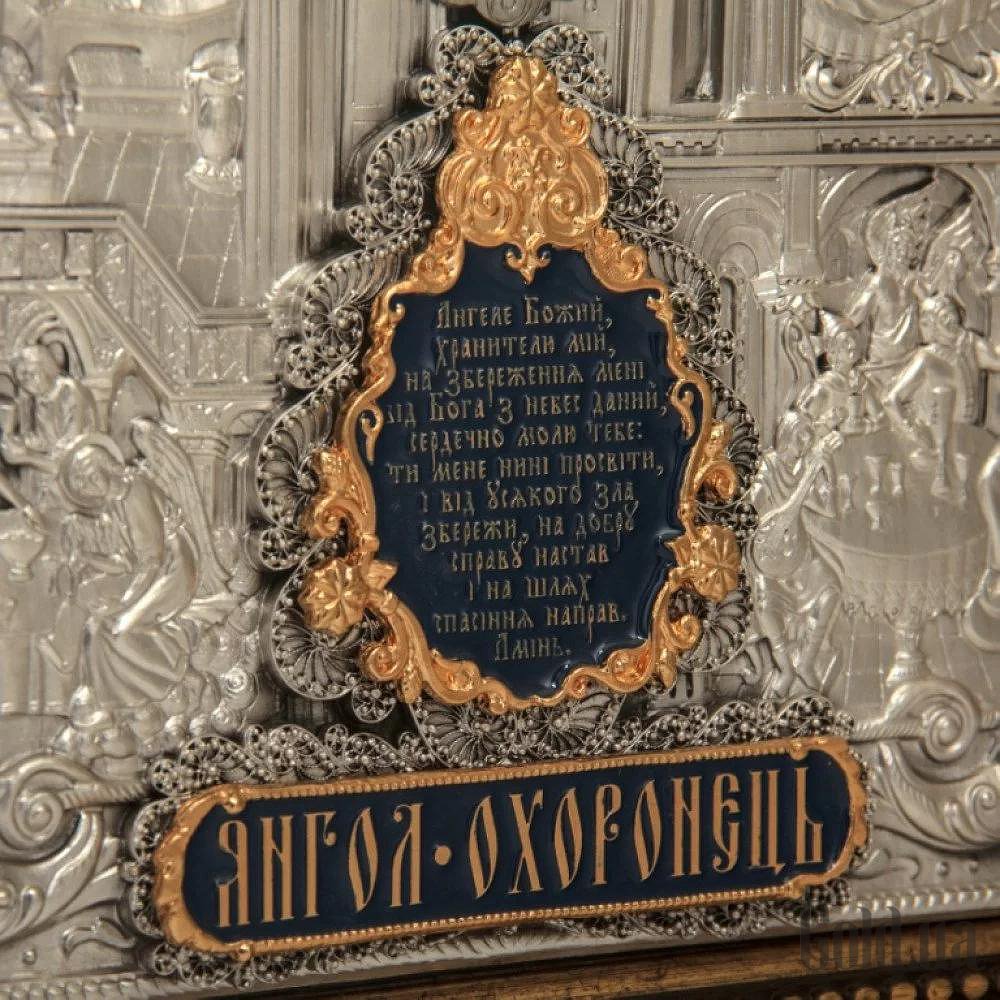 Ангеле Божий,
хранителю мій,
на збереження мені
від Бога з небес даний,
сердечно молю тебе:
ти мене нині просвіти,
і від усякого зла
збережи, на добру
справу настав
і на шлях
спасіння направ.
Амінь.
ЯНГОЛ · ОХОРОНЕЦЬ
Gold.ua